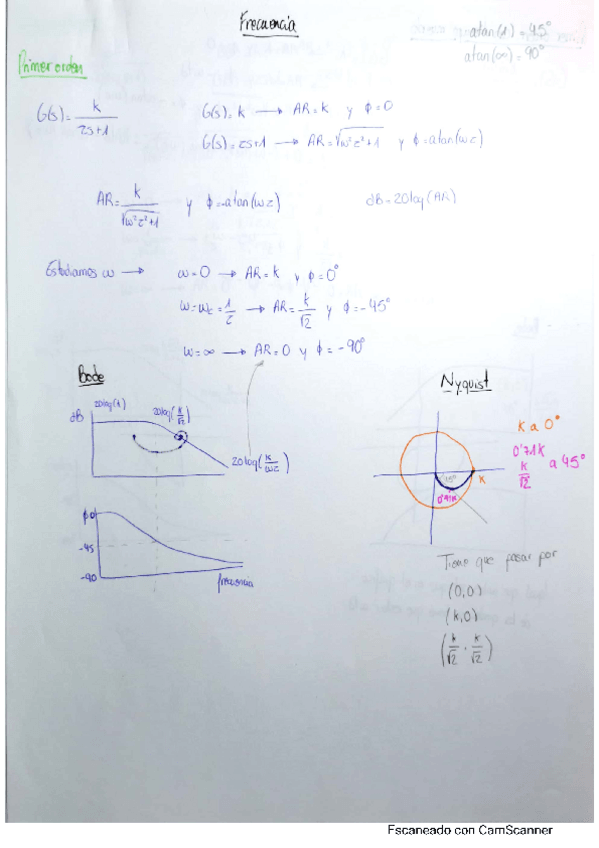 Frecuencia
atan(1) = 45°
atan(∞) = 90°
Primer orden
G(s) = k / (τs+1)
G(s) = k → AR = k y ϕ = 0
G(s) = τs+1 → AR = √(w²τ²+1) y ϕ = atan(wτ)
AR = k / √(w²τ²+1) y ϕ = -atan(wτ) dB = 20log(AR)
Estudiamos w → w = 0 → AR = k y ϕ = 0°
w = wc = 1/τ → AR = k/√2 y ϕ = -45°
w = ∞ → AR = 0 y ϕ = -90°
Bode
dB
20log(1)
20log(k/√2)
20log(k/wτ)
ϕ 0
-45
-90
frecuencia
Nyquist
k a 0°
0'71k
k/√2 a 45°
k
45°
0'71k
Tiene que pasar por
(0,0)
(k,0)
(k/√2, k/√2)
Escaneado con CamScanner